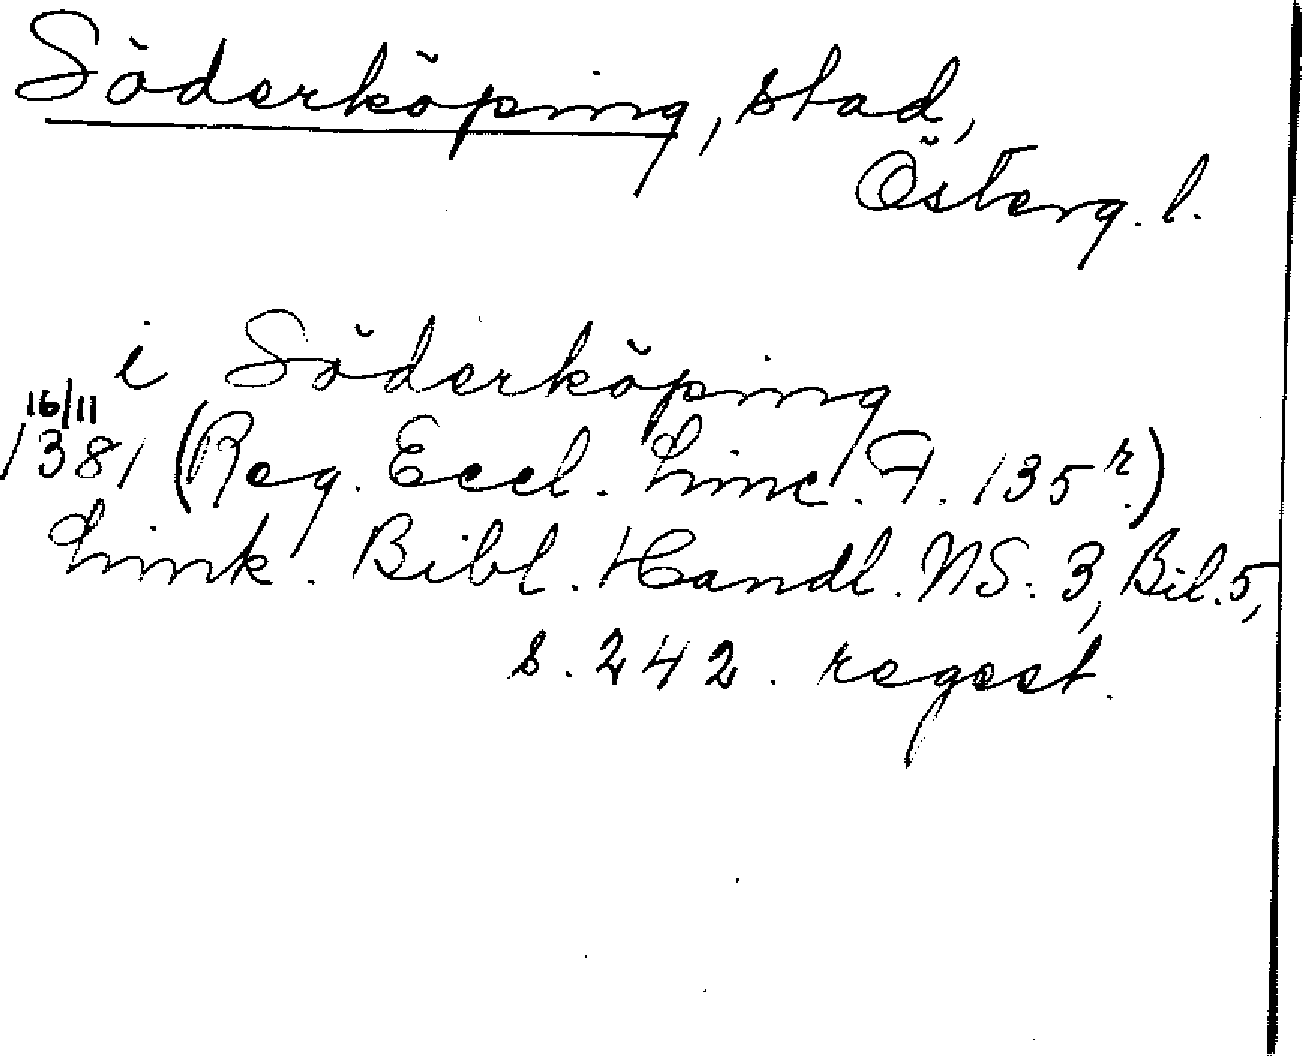 Söderköping, stad,
Österg. l.
i Söderköping
16/11
1381 (Reg. Eccl. Linc. A. 135 r.)
Link. Bibl. Handl. NS. 3, Bil. 5,
s. 242. regest.